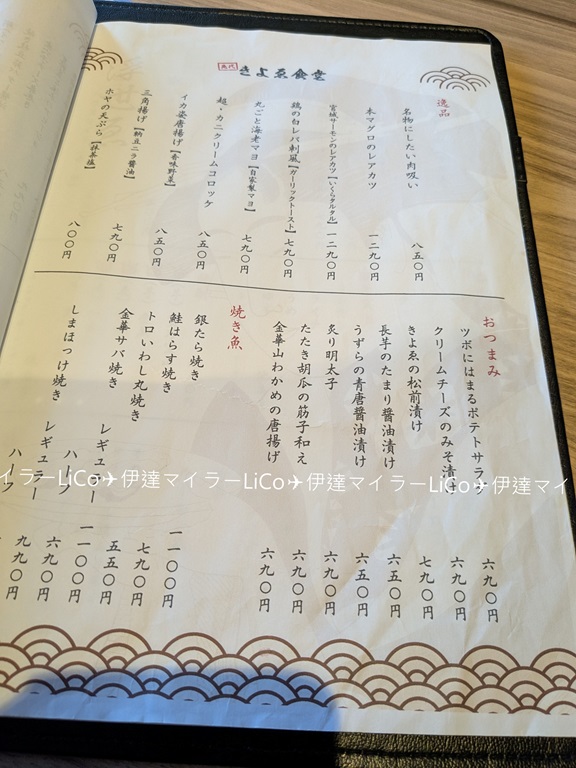 きよゑ食堂
逸品
名物にしたい肉吸い 八五〇円
本マグロのレアカツ 一二九〇円
宮城サーモンのレアカツ【いくらタルタル】 一二九〇円
鶏の白レバ刺風【ガーリックトースト】 七九〇円
丸ごと海老マヨ【自家製マヨ】 七九〇円
超・カニクリームコロッケ 八五〇円
イカ姿唐揚げ【香味野菜】 八五〇円
三角揚げ【納豆ニラ醤油】 七九〇円
ホヤの天ぷら【抹茶塩】 八〇〇円
おつまみ
ツボにはまるポテトサラダ 六九〇円
クリームチーズのみそ漬け 六九〇円
きよゑの松前漬け 七九〇円
長芋のたまり醤油漬け 六五〇円
うずらの青唐醤油漬け 六五〇円
炙り明太子 六九〇円
たたき胡瓜の筋子和え 六九〇円
金華山わかめの唐揚げ 六九〇円
焼き魚
銀たら焼き 一一〇〇円
鮭はらす焼き 七九〇円
トロいわし丸焼き 五五〇円
金華サバ焼き レギュラー 一一〇〇円
ハーフ 六九〇円
しまほっけ焼き レギュラー 九九〇円
ハーフ
イラーLiCo✈伊達マイラーLiCo✈伊達マイラーLiCo✈伊達マイ